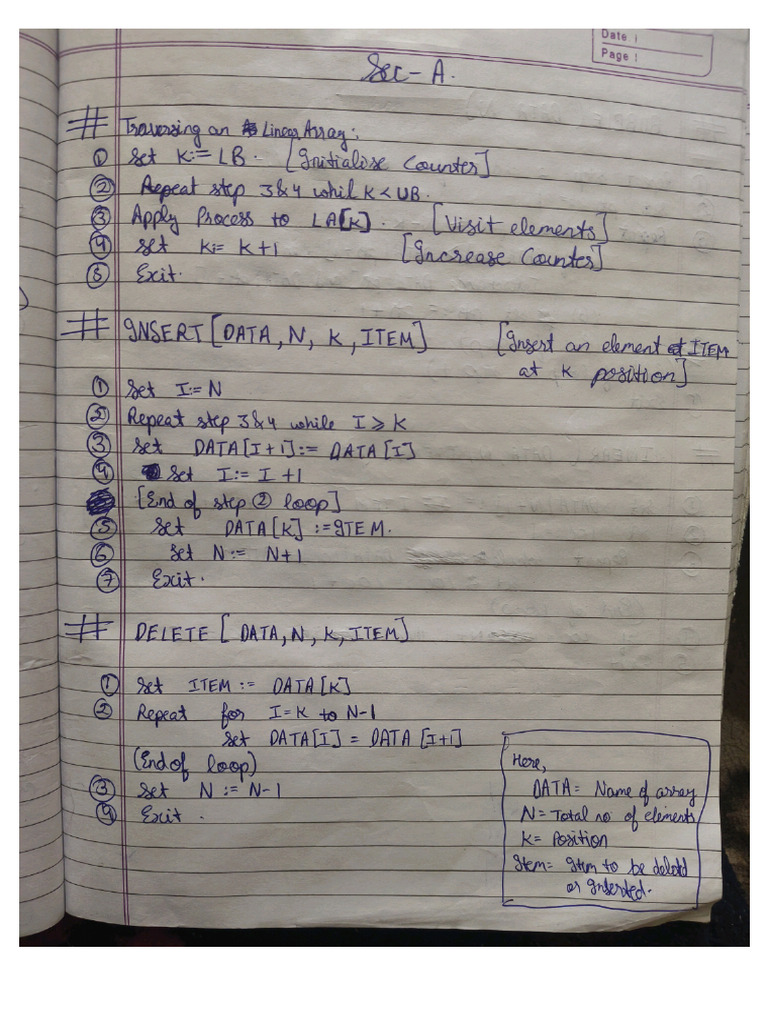 Date :
Page :
Sec-A.
# Traversing an Linear Array:
① Set K:= LB. [Initialise Counter]
② Repeat step 3&4 whil K < UB.
③ Apply Process to LA[K]. [Visit elements]
④ Set K:= K+1 [Increase Counter]
⑤ Exit.
# INSERT [DATA, N, K, ITEM] [Insert an element at ITEM
at K position]
① Set I:= N
② Repeat step 3&4 while I ⩾ K
③ Set DATA[I+1]:= DATA[I]
④ Set I:= I+1
[End of step ② loop]
⑤ Set DATA[K] :=ITEM.
⑥ Set N:= N+1
⑦ Exit.
# DELETE [DATA, N, K, ITEM]
① Set ITEM:= DATA[K]
② Repeat for I=K to N-1
Set DATA[I] = DATA [I+1]
(End of loop)
③ Set N := N-1
④ Exit.
Here,
DATA= Name of array
N= Total no of elements
K= Position
Item= Item to be deletd
or Inserted.